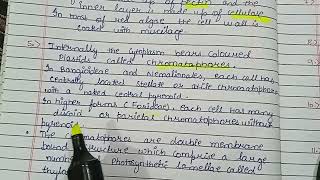 up of pectin and the
inner layer is made up of cellulose
In most of red algae the cell wall is
coated with mucilage.
5) Internally the cytoplasm bears coloured
Plastids called chromatophores.
In Bangioideae and Nemalionales, each cell has
centrally located stellate or
with a naked central pyrenoid.
In higher forms (Florideae), each cell has many
discoid or parietal chromatophores without
pyrenoids.
The chromatophores are double membrane
bound structure which comprise a large
number Photosynthetic lamellae called
thyla